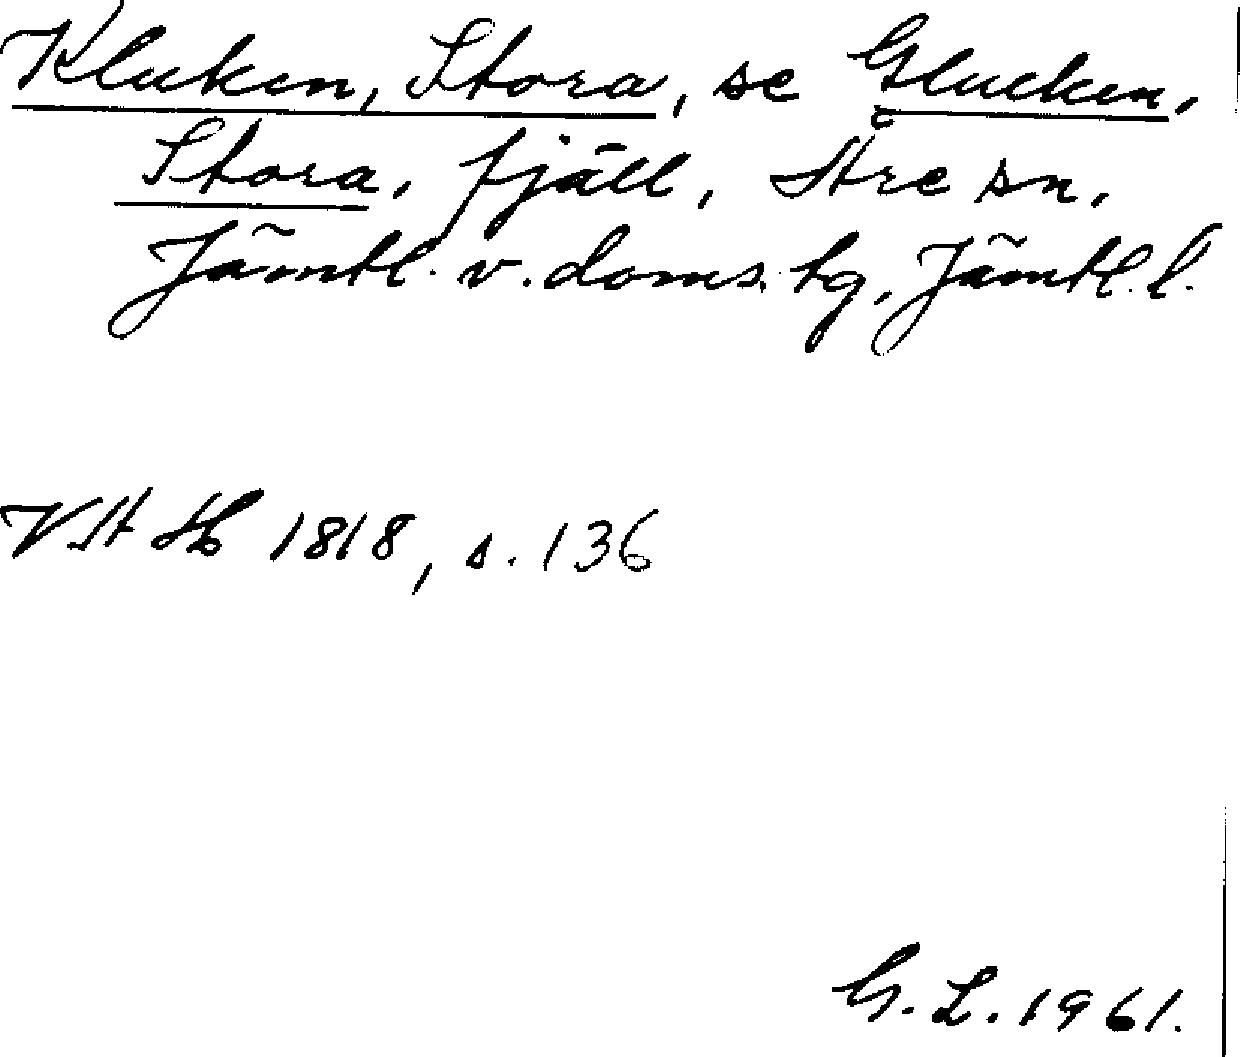 Kluken, Stora, se Glucken,
Stora, fjäll, Åre sn,
Jämtl. v. doms. tg, Jämtl. l.
VAH 1818, s. 136
G. L. 1961.